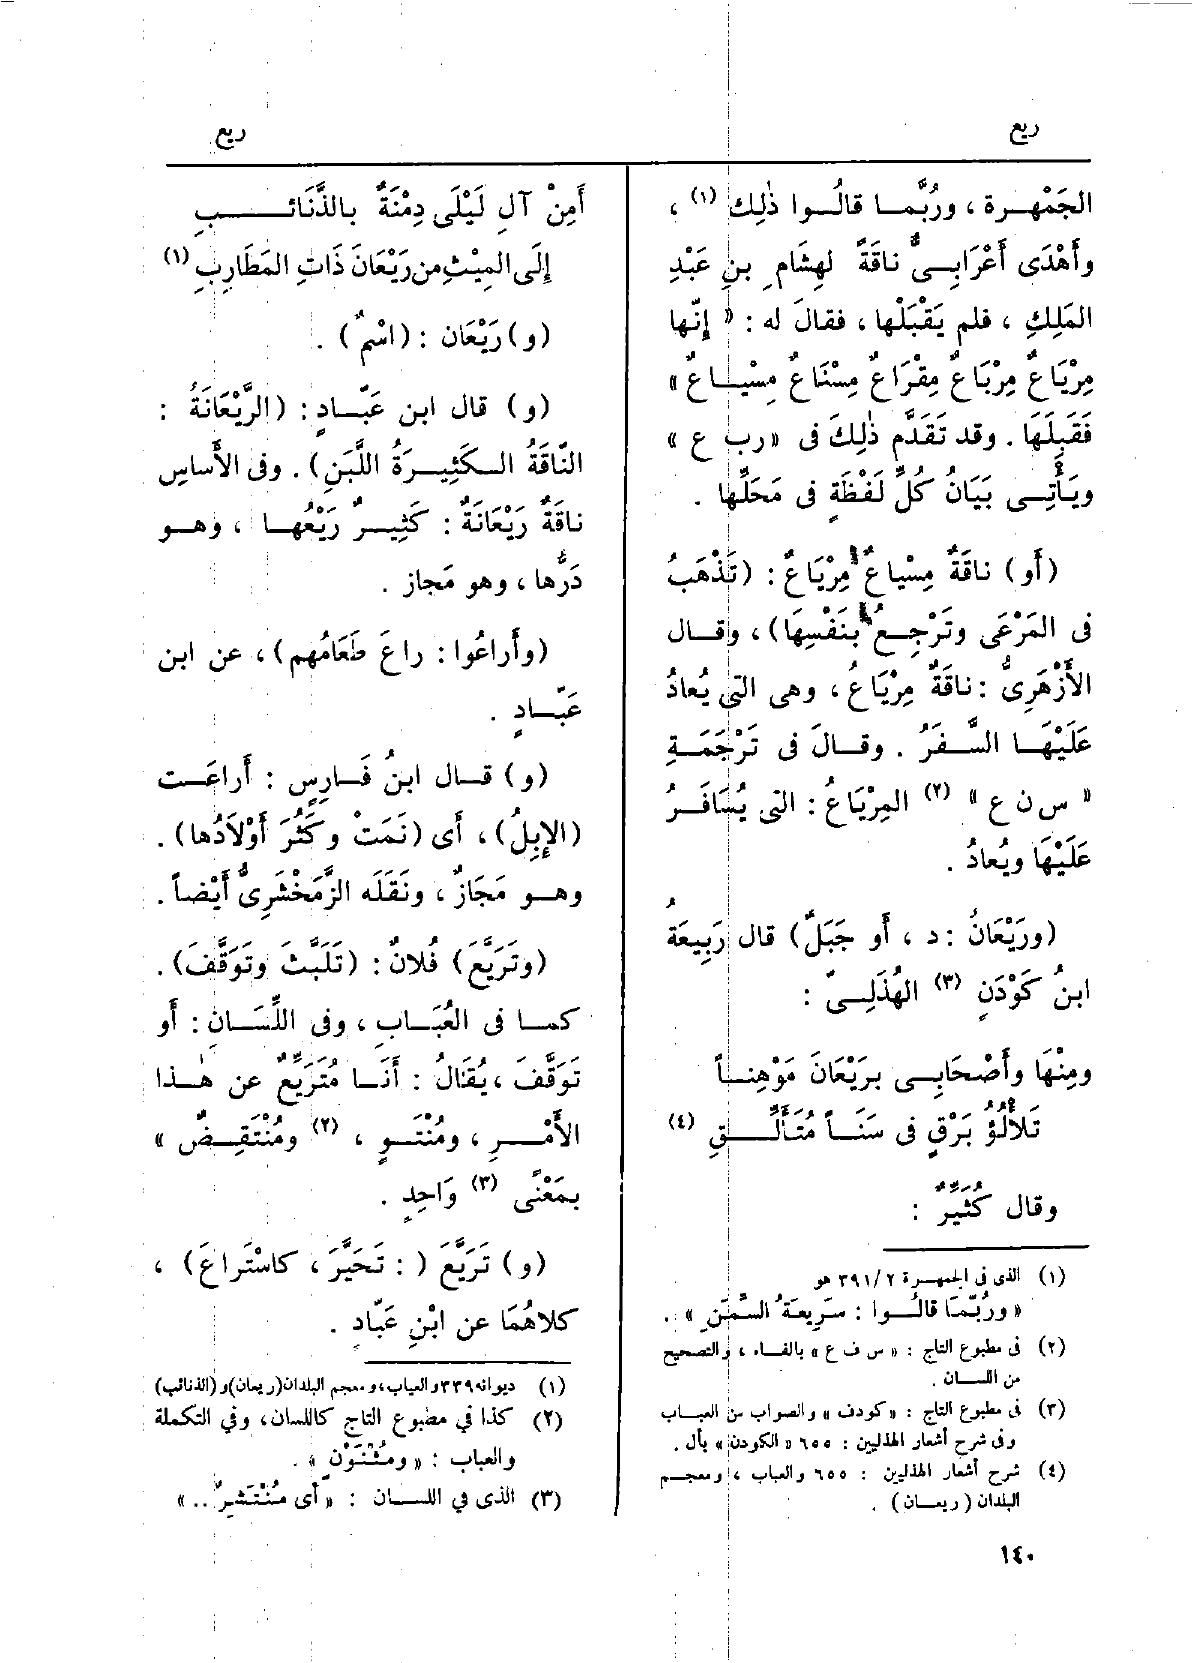 ريع
ريع
الجَمْهـرة ، ورُبَّمـا قالُـوا ذٰلِك (١) ،
وأَهْدَى أَعْرَابِـىٌّ ناقَةً لهِشَامِ بنِ عَبْدِ
المَلِكِ ، فلم يَقْبَلْها ، فقالَ له : « إِنّها
مِرْيَاعٌ مِرْبَاعٌ مِقْرَاعٌ مِسْنَاعٌ مِسْيَـاعٌ »
فَقَبِلَهَا . وقد تَقَدَّم ذٰلِكَ فى «ربع »
ويَأْتِـى بَيَانُ كُلِّ لَفْظَةٍ فى مَحَلِّها .
(أَو) نَاقَةٌ مِسْيَاعٌ مِرْيَاعٌ : (تَذْهَبُ
فى المَرْعَى وتَرْجِـعُ بنَفْسِهَا) ، وقـال
الأَزْهَرِىُّ : ناقَةٌ مِرْيَاعُ ، وهى التى يُعادُ
عَلَيْهَـا السَّـفَرُ . وقـالَ فى تَرْجَمَـةِ
« س ن ع » (٢) المِرْيَاعُ : التى يُسَافَـرُ
عَلَيْهَا ويُعادُ .
(ورَيْعَانُ : د ، أَو جَبَلٌ) قال رَبِيعَةُ
ابنُ كَوْدَنٍ (٣) الهُذَلِـىّ :
ومِنْهَا وأَصْحَابِـى بِرَيْعَانَ مَوْهِنـاً
تَلأْلُؤُ بَرْقٍ فى سَنَـاً مُتَأَلِّـقِ (٤)
وقال كُثَيِّرٌ :
(١) الذى فى الجمهـرة ٣٩١/٢ هو
« ورُبّمَا قالُـوا : سَرِيعَةُ السِّمَنِ » .
(٢) فى مطبوع التاج : « س ف ع » بالفـاء ، والتصحيح
من اللسـان .
(٣) فى مطبوع التاج : « كودف » والصواب من العباب
وفى شرح أشعار الهذليين : ٦٥٥ « الكودن » بأل .
(٤) شرح أشعار الهذليين : ٦٥٥ والعباب ، ومعجـم
البلدان ( ريعـان ) .
١٤٠
أَمِنْ آلِ لَيْلَى دِمْنَةٌ بالذَّنَائـبِ
إِلَى المِيْثِ من رَيْعَانَ ذَاتِ المَطَارِبِ (١)
(و) رَيْعَان : (اسْمٌ) .
(و) قال ابن عَبّـادٍ : (الرَّيْعَانَةُ :
النّاقَةُ الـكَثِيـرَةُ اللَّبَنِ) . وفى الأَساسِ
ناقَةٌ رَيْعَانَةٌ : كَثِيـرٌ رَيْعُهـا ، وهـو
دَرُّها ، وهو مَجاز .
(وأَراعُوا : راعَ طَعَامُهم) ، عن ابن
عَبّـادٍ .
(و) قـال ابنُ فَـارِسٍ : أَراعَـت
(الإِبِلُ) ، أَى (نَمَتْ وكَثُرَ أَوْلاَدُها) .
وهـو مَجَازٌ ، ونَقَلَه الزَّمَخْشَرِىُّ أَيْضاً .
(وتَرَيَّعَ) فُلانٌ : (تَلَبَّثَ وتَوَقَّفَ) .
كمـا فى العُبَـابِ ، وفى اللِّسَـانِ : أَو
تَوَقَّفَ ، يُقَالُ : أَنَـا مُتَرَيِّعٌ عن هٰـذا
الأَمْـرِ ، ومُنْتَـوٍ ، (٢) ومُنْتَقِضٌ »
بمَعْنًى (٣) وَاحِدٍ .
(و) تَرَيَّعَ ( : تَحَيَّرَ ، كاسْتَراعَ) ،
كلاهُمَا عن ابْنِ عَبّادٍ .
(١) ديوانه ٣٣٩ والعباب ، ومعجم البلدان (ريعان) و (الذنائب)
(٢) كذا في مطبوع التاج كاللسان ، وفي التكملة
والعباب : « ومُثْنَوْنٍ » .
(٣) الذى في اللسـان : « أى مُنْتَشِرٌ .. »